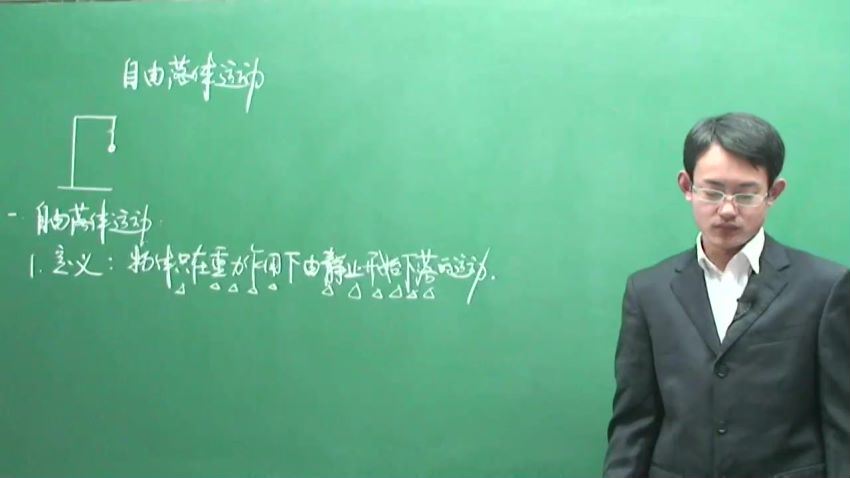 自由落体运动
一. 自由落体运动:
1. 定义: 物体只在重力作用下由静止开始下落的运动.